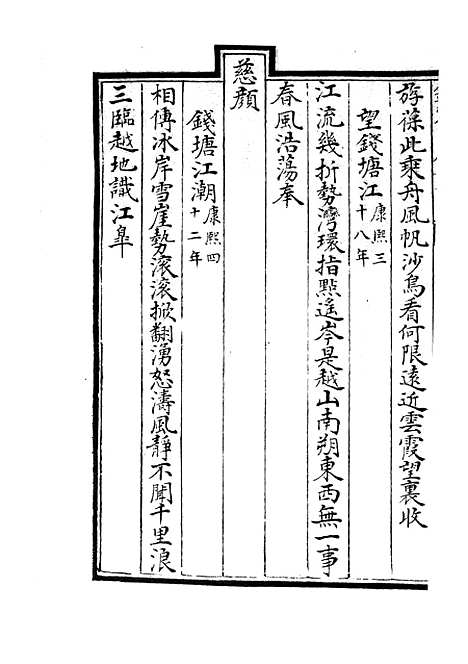 斿葆此乘舟風帆沙鳥看何限遠近雲霞望裏收
望錢塘江康熙三十八年
江流幾折勢灣環指點遙岑是越山南朔東西無一事
春風浩蕩奉
慈顔
錢塘江潮康熙四十二年
相傳冰岸雪崖勢滚滚掀翻湧怒濤風靜不聞千里浪
三臨越地識江臯